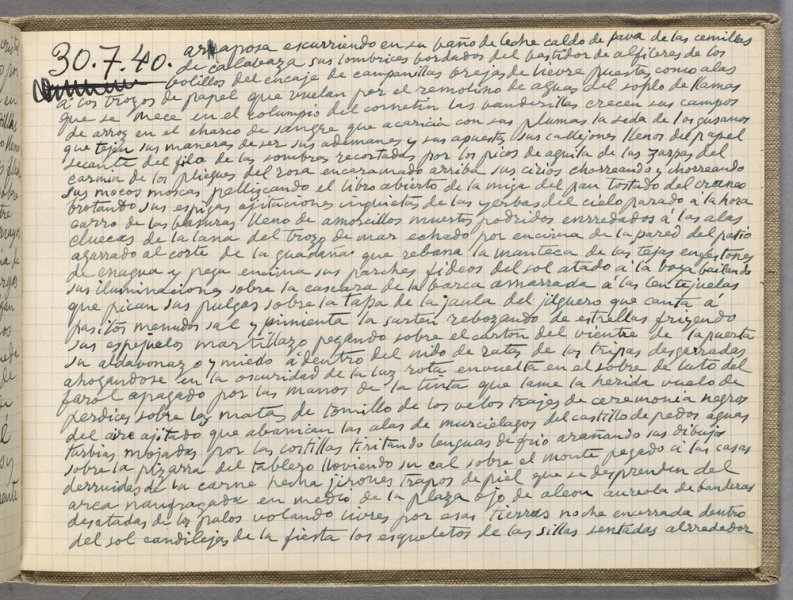 30.7.40. arraposa escurriendo en su baño de leche caldo de pava de las cemillas
de calabaza sus lombrices bordados del bastidor de alfileres de los
bolillos del encaje de campanillas orejas de lievre puestas como alas
a los trozos de papel que vuelan por el remolino de aguas del soplo de llamas
que se mece en el columpio del cornetin las banderillas crecen sus campos
de arroz en el charco de sangre que acaricia con sus plumas la seda de los gusanos
que tejen sus maneras de ser sus ademanes y sus apuestas sus callejones llenos del papel
secante del filo de las sombras recortadas por los picos de aguila de las zarpas del
carmin de los pliegues del rosa encaramado arriba sus cirios chorreando y chorreando
sus mocos moscas pellizcando el libro abierto de la miga del pan tostado del craneo
brotando sus espigas agitaciones inquietas de las yerbas del cielo parado a la hora
carro de las basuras lleno de amorcillos muertos podridos enrredados a las alas
cluecas de la lana del trozo de mar echado por encima de la pared del patio
agarrado al corte de la guadaña que rebana la manteca de las tejas en festones
de enagua y pega encima sus parches fideos del sol atado a la boya bailando
sus iluminaciones sobre la cascara de la barca amarrada a las lentejuelas
que pican sus pulgas sobre la tapa de la jaula del jilguero que canta á
pasitos menudos sal y pimienta la sarten rebozando de estrellas friyendo
sus espejuelos martillazo pegando sobre el carton del vientre de la puerta
su aldavonazo y miedo adentro del nido de ratas de las tripas desgarradas
ahogandose en la oscuridad de la luz rota envuelta en el sobre de luto del
farol apagado por las manos de la tinta que lame la herida vuelo de
perdices sobre las matas de tomillo de los velos trajes de ceremonia negros
del aire ajitado que abanican las alas de murcielagos del castillo de pedos aguas
turbias mojadas por las costillas tiritando lenguas de frio arañando sus dibujos
sobre la pizarra del tablero lloviendo su cal sobre el monte pegado á las casas
derruidas de la carne hecha jirones trapos de piel que se desprenden del
arca naufragada en medio de la plaza ojo de aleon aureola de banderas
desatadas de los palos volando livres por esas tierras noche encerrada dentro
del sol candilejas de la fiesta los esqueletos de las sillas sentadas alrrededor